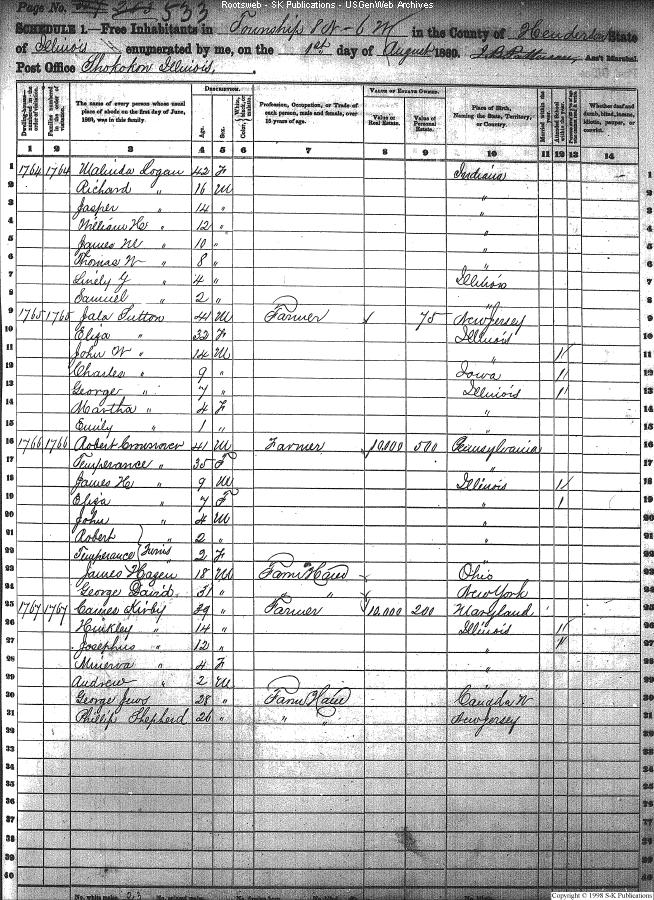 Rootsweb - SK Publications - USGenWeb Archives
Page No. 533
SCHEDULE 1.—Free Inhabitants in Township 8 N - 6 W in the County of Henderson State
of Illinois enumerated by me, on the 1st day of August 1860. Ass't Marshal.
Post Office Shokokon Illinois.
DESCRIPTION. VALUE OF ESTATE OWNED.
Dwelling-houses—numbered in the order of visitation.
Families numbered in the order of visitation.
The name of every person whose usual place of abode on the first day of June, 1860, was in this family.
Age. Sex.
Profession, Occupation, or Trade of each person, male and female, over 15 years of age.
Value of Real Estate. Value of Personal Estate.
Place of Birth, Naming the State, Territory, or Country.
Married within the year. Attended School within the year.
Whether deaf and dumb, blind, insane, idiotic, pauper, or convict.
1 2 3 4 5 6 7 8 9 10 11 12 13 14
1 1764 1764 Malinda Logan 42 F Indiana 1
2 Richard " 16 M " 2
3 Jasper " 14 " " 3
4 William H " 12 " " 4
5 James M " 10 " " 5
6 Thomas W " 8 " " 6
7 " 4 " Illinois 7
8 Samuel " 2 " " 8
9 1765 1765 Sutton 41 M Farmer 75 New Jersey 9
10 Eliza " 32 F Illinois 10
11 John W " 14 M " 1 11
12 Charles " 9 " Iowa 1 12
13 George " 7 " Illinois 1 13
14 Martha " 4 F " 14
15 Emily " 1 " " 15
16 1766 1766 Robert Cronover 41 M Farmer 10,000 500 Pennsylvania 16
17 Temperance " 35 F " 17
18 James H " 9 M Illinois 1 18
19 Eliza " 7 F " 1 19
20 John " 4 M " 20
21 Robert } Twins 2 " " 21
22 Temperance 2 F " 22
23 James Hagen 18 M Farm Hand Ohio 23
24 George Baird 31 " " " New York 24
25 1767 1767 Kirby 39 " Farmer 10,000 200 Maryland 25
26 Hinkley " 14 " Illinois 1 26
27 Josephus " 12 " " 1 27
28 Minerva " 4 F " 28
29 Andrew " 2 M " 29
30 George 28 " Farm Hand Canada W 30
31 Phillip Shepherd 26 " " " New Jersey 31
32
33
34
35
36
37
38
39
40
No. white males,
Copyright © 1998 S-K Publications